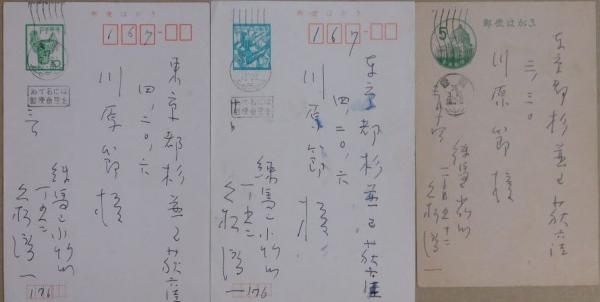 郵便はがき
167
東京都杉並区荻窪
四、二〇、六
川原節様
あて名には
郵便番号を
練馬区小竹町
一ノ五二
久松潜一
176
郵便はがき
167
東京都杉並区荻窪
四、二〇、六
川原節様
あて名には
郵便番号を
練馬区小竹町
一ノ五二
久松潜一
176
郵便はがき
5
東京都杉並区荻窪
川原節様
練馬区小竹町
久松潜一